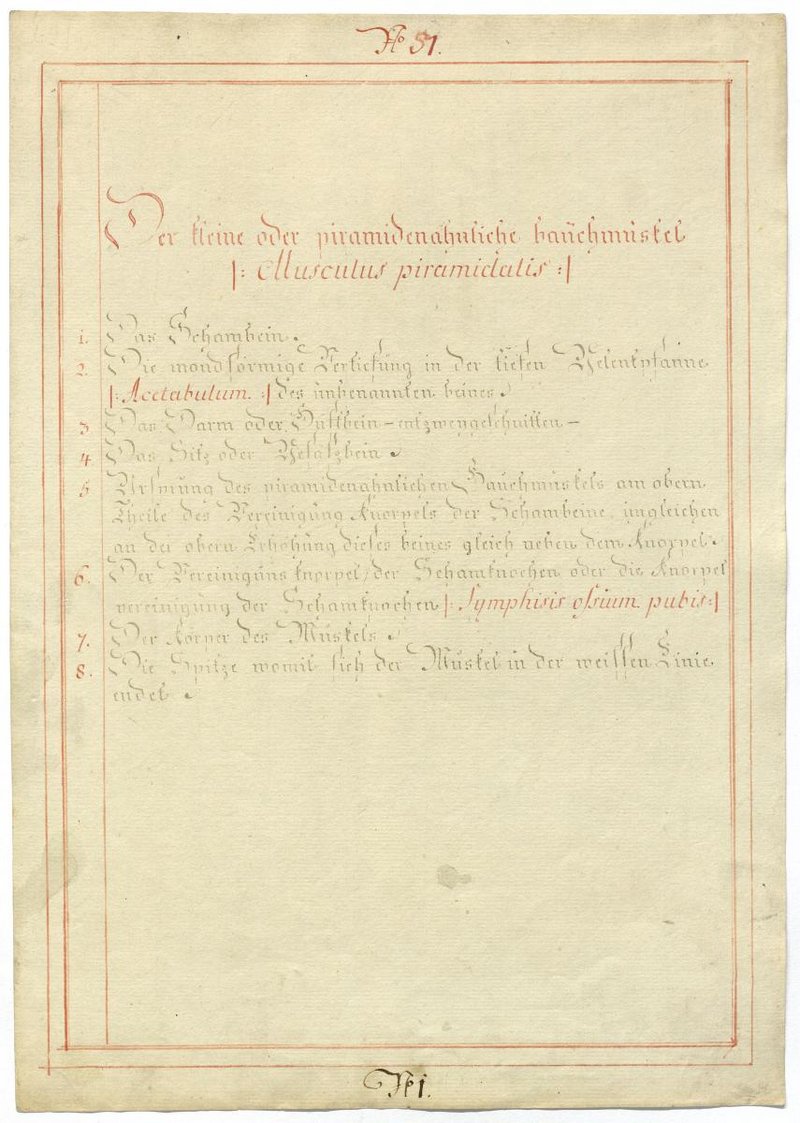 No 51.
Der kleine oder piramidenähnliche bauchmuskel
|: Musculus piramidalis :|
1. Das Schambein.
2. Die mondförmige Vertiefung in der tiefen Gelenkpfanne
|: Acetabulum. :| des unbenannten beines.
3 Das Darm oder Hüftbein - entzweygeschnitten -
4 Das Sitz oder Gesäßbein.
5 Ursprung des piramidenähnlichen Bauchmuskels am obern
Theile des Vereinigung knorpels der Schambeine, ingleichen
an der obern Erhöhung dieses beines gleich neben dem Knorpel.
6. Der Vereiniguns knorpel, der Schamknochen oder die Knorpel
vereinigung der Schamknochen |: Symphisis ossium pubis :|
7. Der körper des Muskels.
8. Die Spitze womit sich der Muskel in der weissen Linie
endet.
No 1.